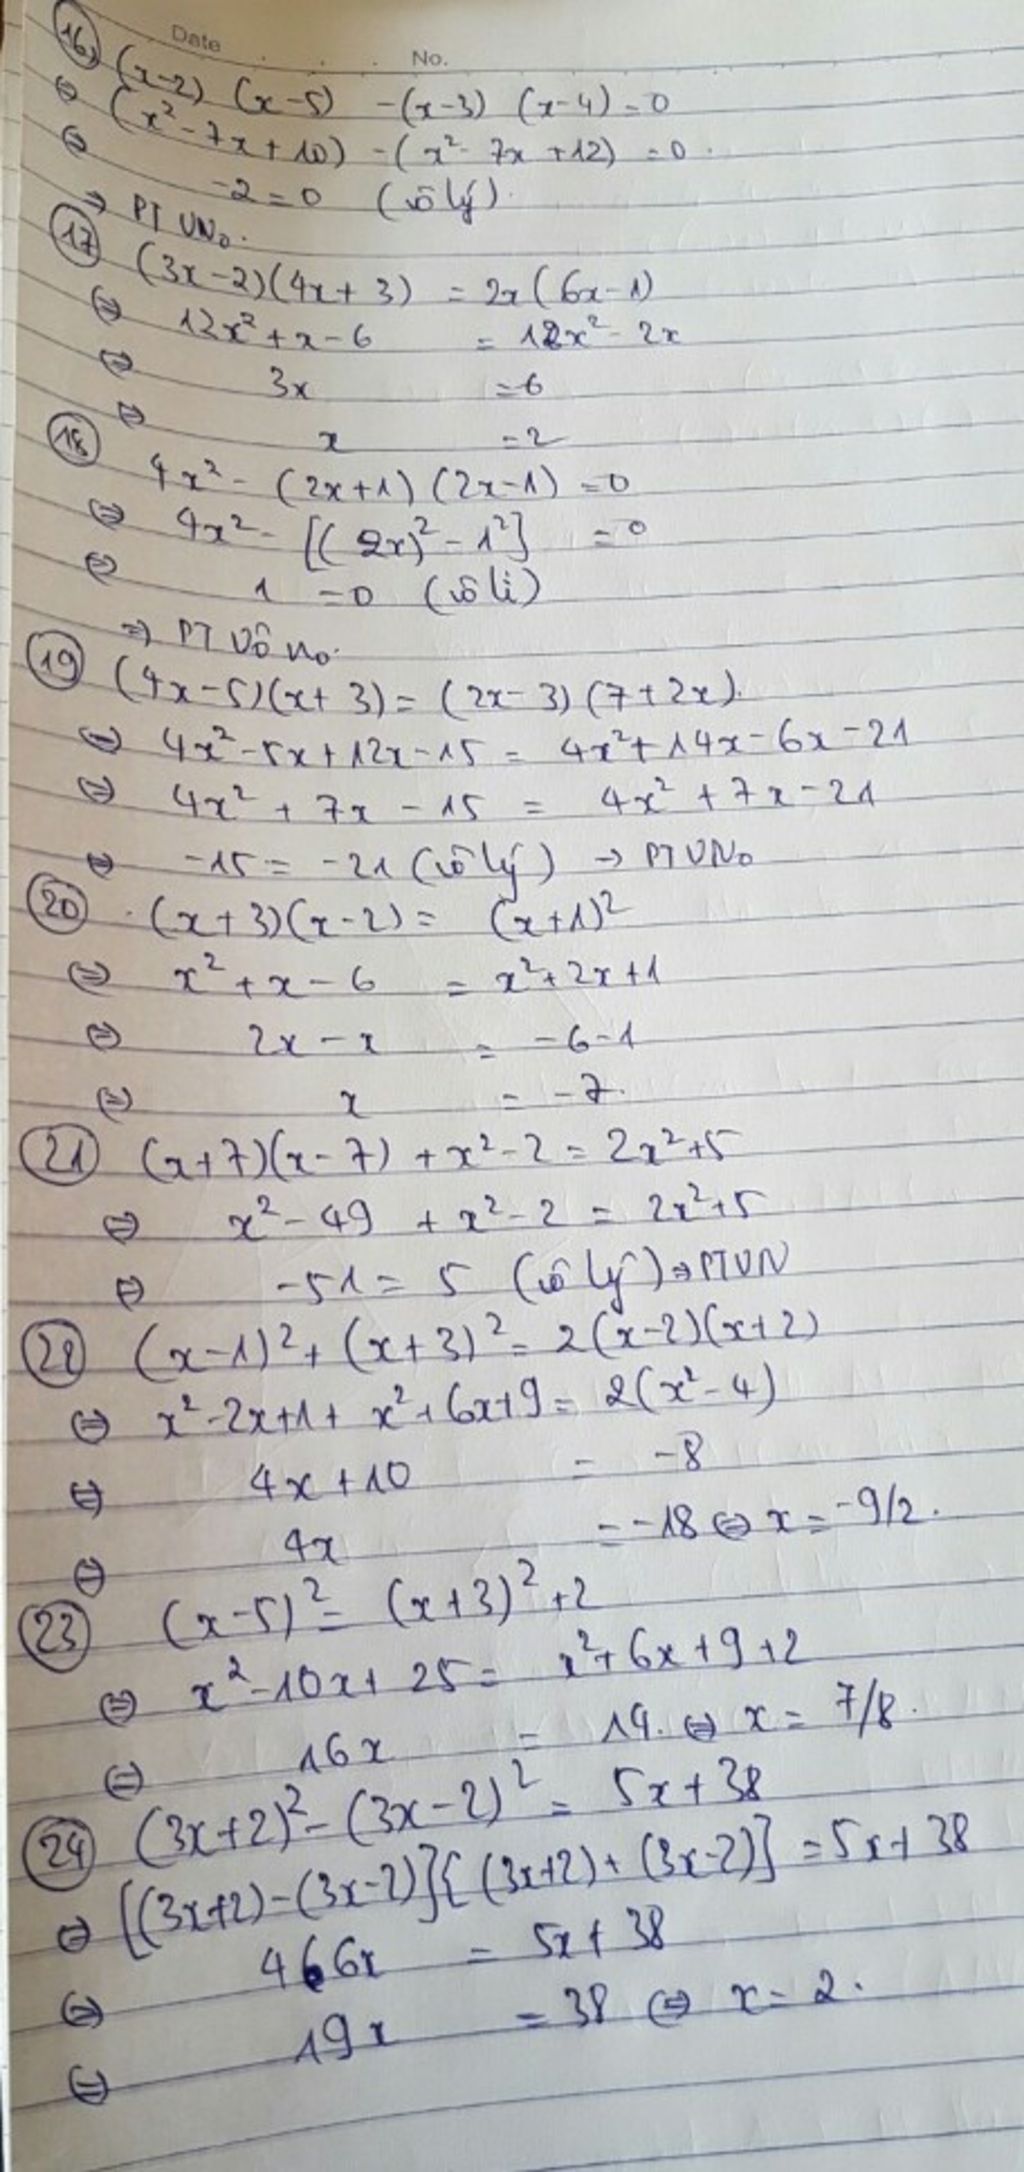 Date No.
16, (x-2) (x-5) -(x-3) (x-4)=0
⇔ (x²-7x+10) -(x²-7x+12) =0.
⇔ -2=0 (vô lý).
⇒ PT VNo.
17 (3x-2)(4x+3) = 2x(6x-1)
⇔ 12x²+x-6 = 12x²-2x
⇔ 3x =6
⇔ x =2
18 4x²- (2x+1)(2x-1) =0
⇔ 4x²- [(2x)²-1²] =0
⇔ 1 =0 (vô lí)
⇒ PT Vô no.
19 (4x-5)(x+3)= (2x-3)(7+2x).
⇔ 4x²-5x+12x-15 = 4x²+14x-6x-21
⇔ 4x² + 7x - 15 = 4x² + 7x-21
⇔ -15 = -21 (vô lý) → PTVNo
20 (x+3)(x-2)= (x+1)²
⇔ x²+x-6 = x²+2x+1
⇔ 2x-x = -6-1
⇔ x = -7.
21 (x+7)(x-7) +x²-2=2x²+5
⇔ x²-49 +x²-2 = 2x²+5
⇔ -51= 5 (vô lý)⇒PTVN
22 (x-1)²+(x+3)²=2(x-2)(x+2)
⇔ x²-2x+1+x²+6x+9= 2(x²-4)
⇔ 4x+10 = -8
⇔ 4x =-18⇔x=-9/2.
23 (x-5)²= (x+3)²+2
⇔ x²-10x+25= x²+6x+9+2
⇔ 16x = 14.⇔ x= 7/8.
24 (3x+2)²-(3x-2)²= 5x+38
⇔ [(3x+2)-(3x-2)][(3x+2)+(3x-2)] =5x+38
⇔ 4.6x = 5x+38
⇔ 19x =38 ⇔ x=2.